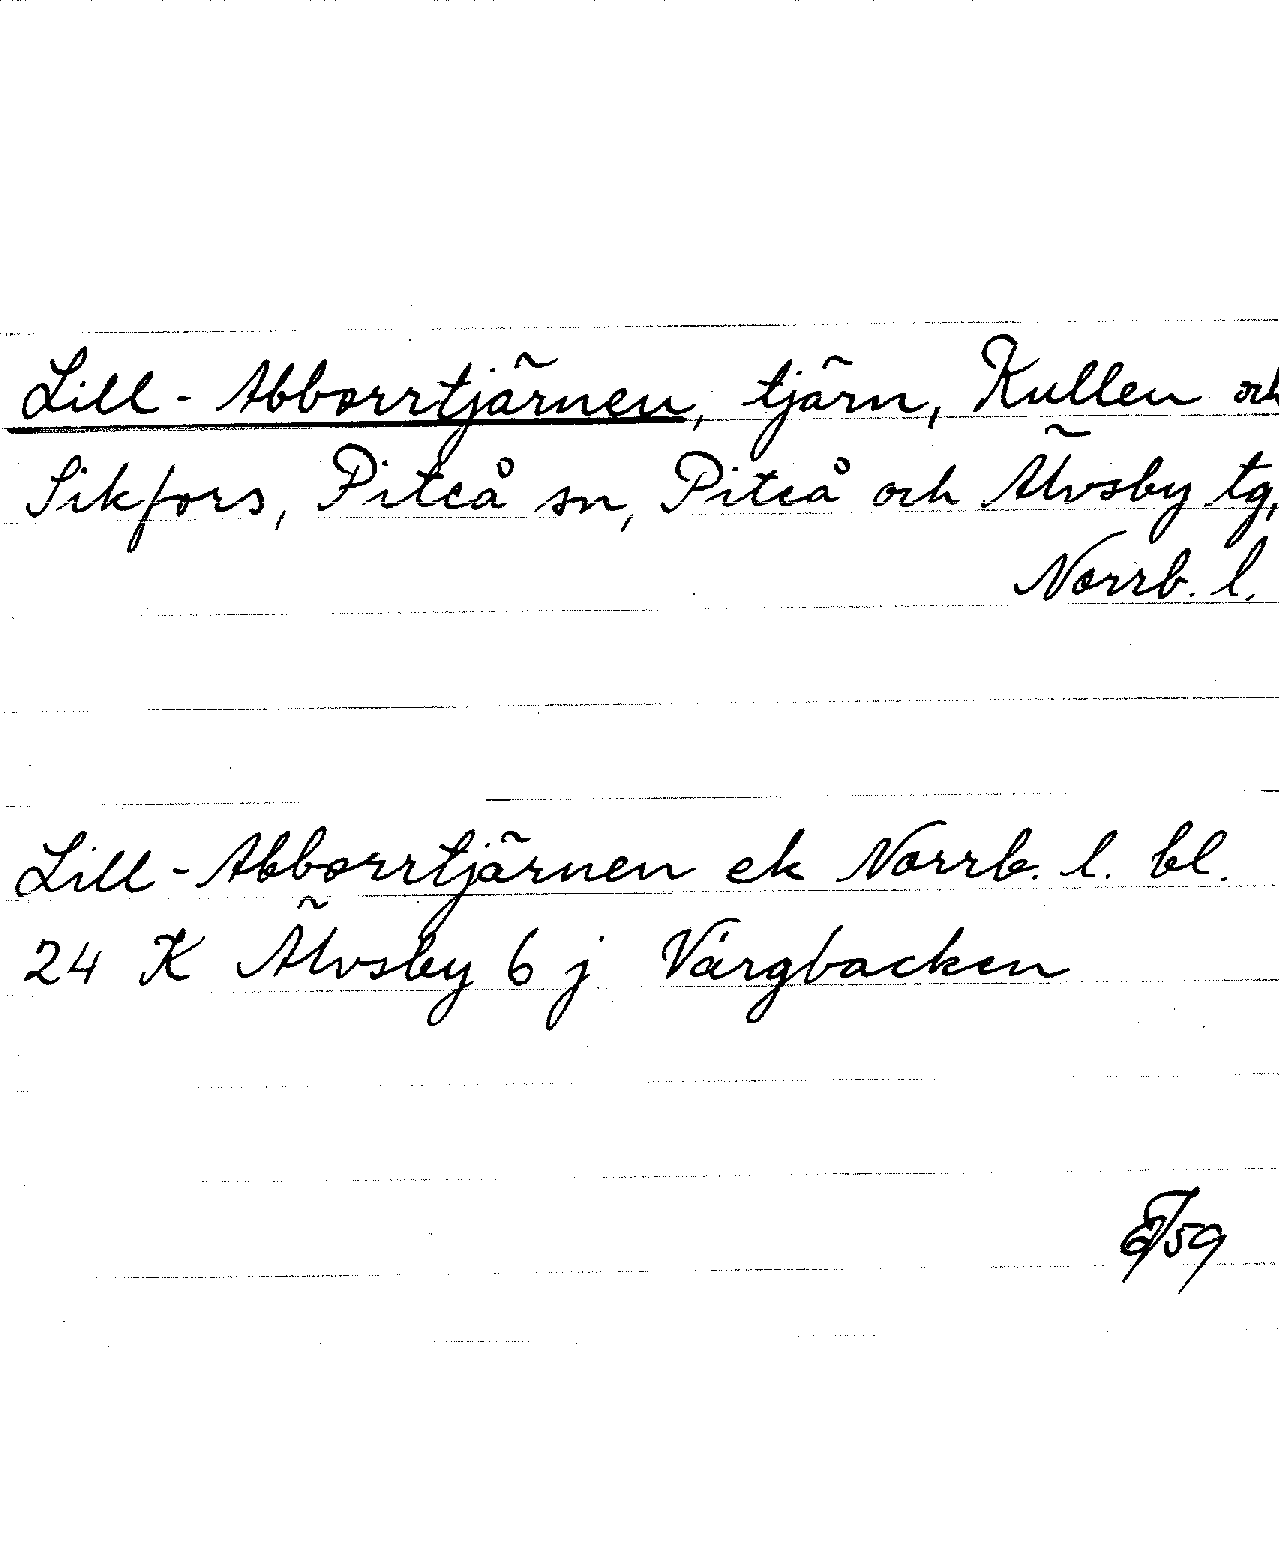 Lill-Abborrtjärnen, tjärn, Kullen och
Sikfors, Piteå sn, Piteå och Älvsby tg,
Norrb. l.
Lill-Abborrtjärnen ek Norrb. l. bl.
24 K Älvsby 6 j Vargbacken
/59